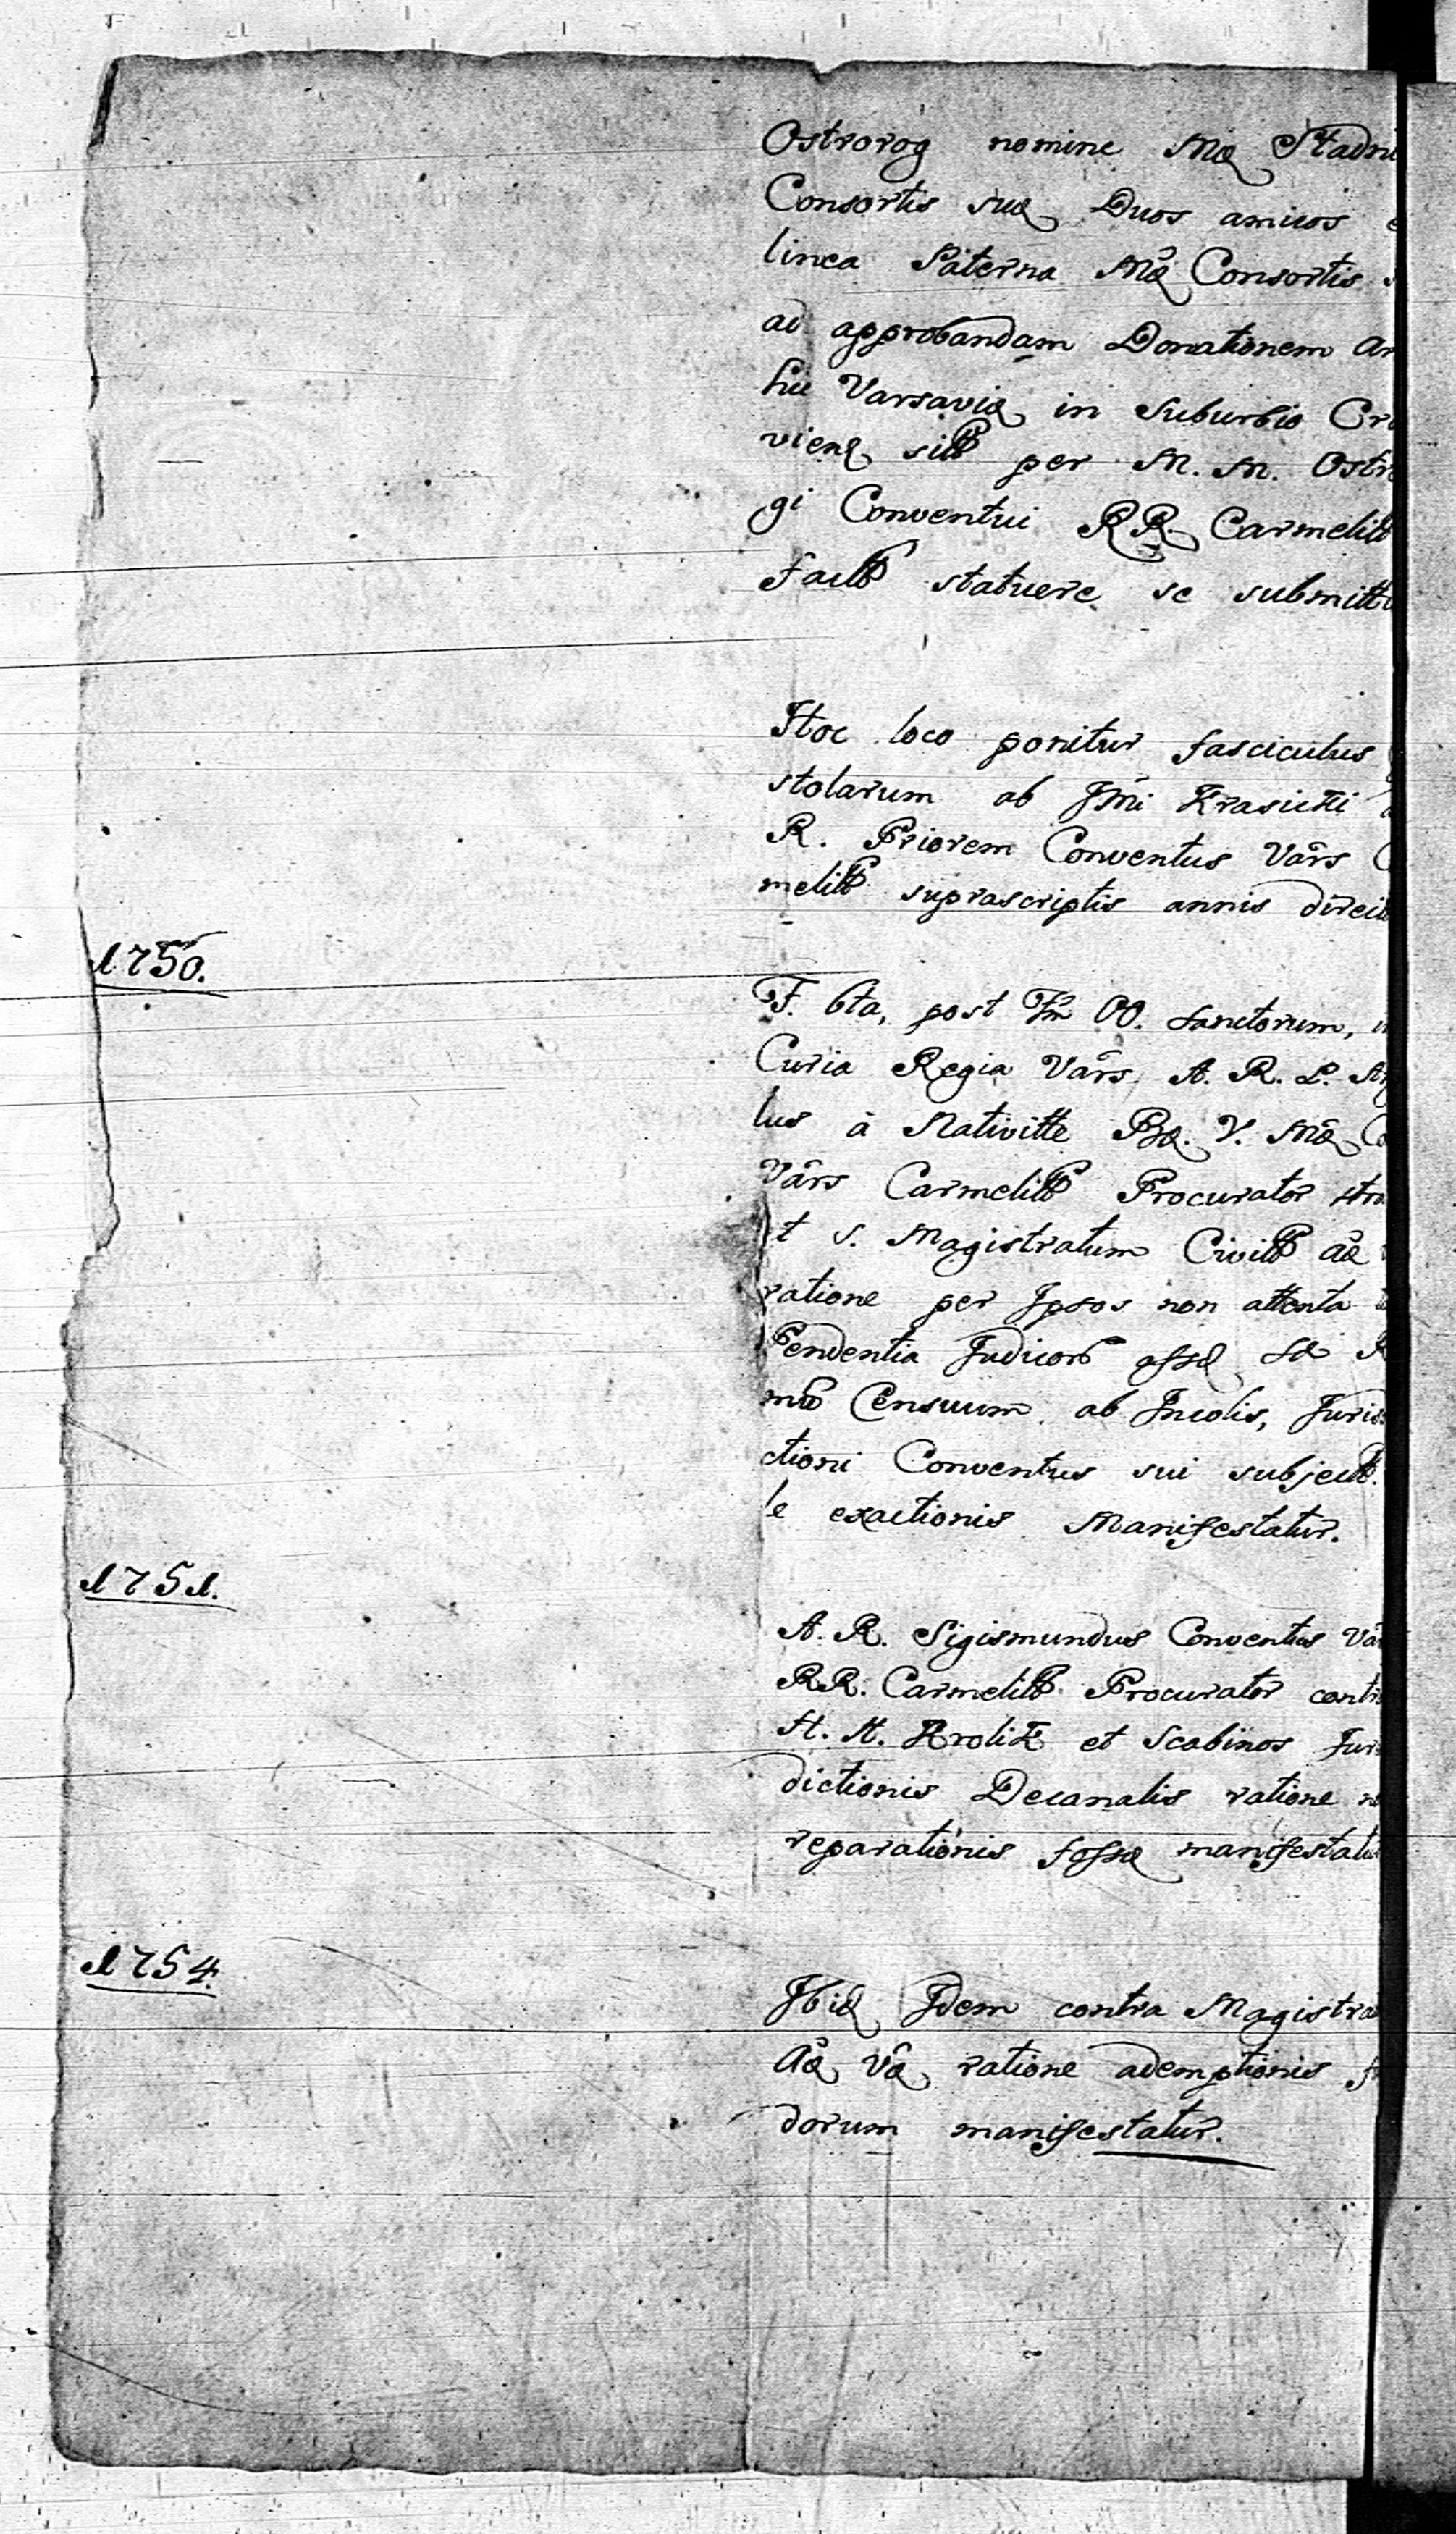 Ostrorog nomine Mæ Stadni
Consortis suæ Duos amicos
linea Paterna Mæ Consortis
ad approbandam Donationem
hic Varsaviæ in Suburbio Cra
viens. sitt. per M. M. Ostro
gi Conventui RR. Carmelitt.
factt. statuere se submitt
Hoc loco ponitur fasciculus
stolarum ab Jmi Krasicki
R. Priorem Conventus Vârs
melitt. suprascriptis annis direct
1750.
F. 6ta, post Fm OO. Sanctorum,
Curia Regia Vârs. A. R. P.
lus à Nativitte Bæ. V. Mæ
Vârs Carmelitt. Procurator
t S. Magistratum Civitt. Aæ
ratione per Ipsos non attenta
Pendentia
Censuum ab Incolis, Juris
ctioni Conventus sui subjectt.
le exactionis Manifestatur.
1751.
A. R. Sigismundus Conventus Vâ
RR. Carmelitt. Procurator contr
Krolik et Scabinos Juri
dictionis Decanalis ratione n
reparationis fossæ manifestatu
1754.
Ibid. Idem contra Magistra
Aæ Væ ratione ademptionis
dorum manifestatur.